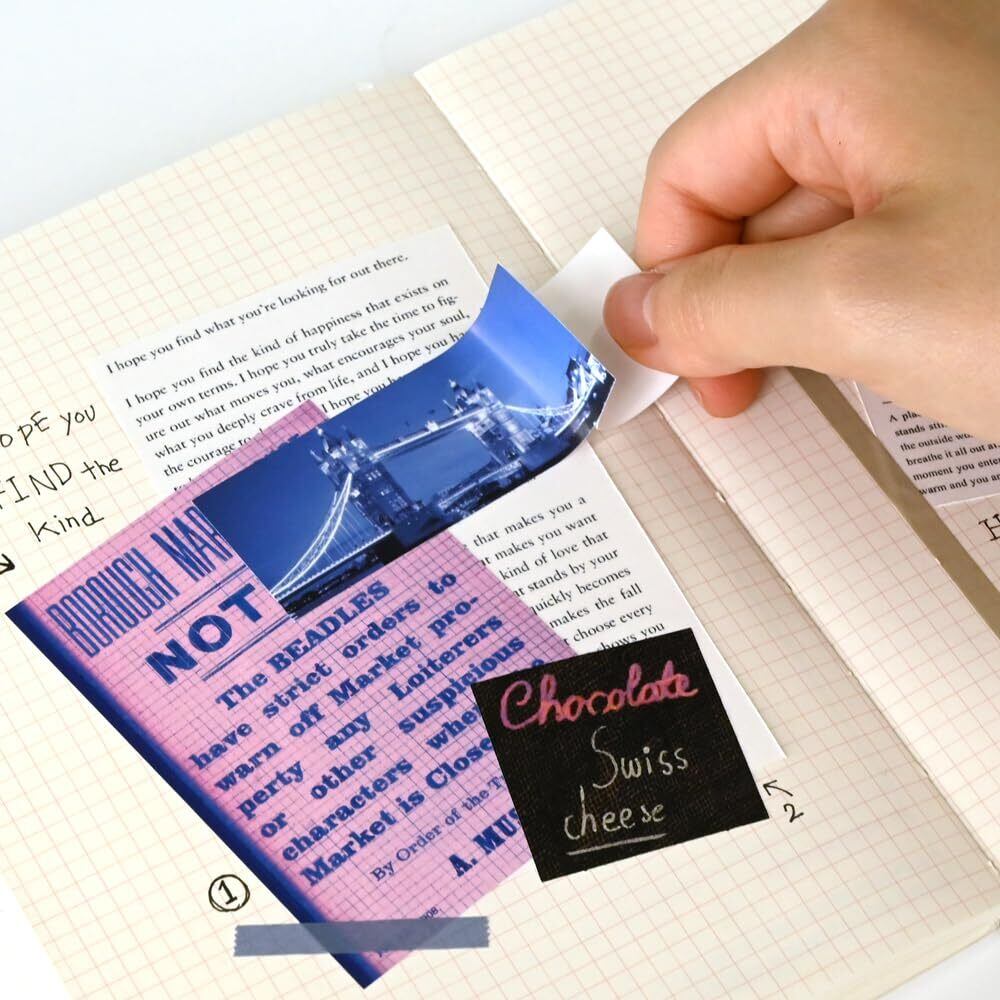 I hope you find what you're looking for out there.
I hope you find the kind of happiness that exists on
your own terms. I hope you truly take the time to fig-
ure out what moves you, what encourages your soul,
what you deeply crave from life, and I hope you
I hope you
the courage to
that makes you a
makes you want
kind of love that
stands by your
quickly becomes
makes the fall
choose every
shows you
OPE YOU
FIND the
kind
BOROUGH MAR
NOT
The BEADLES
have strict orders to
warn off Market pro-
perty any Loiterers
or other suspicious
characters
Market is Close
By Order of the
A. MUS
Chocolate
Swiss
cheese
1
2
A pla
stands
the outside
breathe it all out
moment you ente
warm and you
H